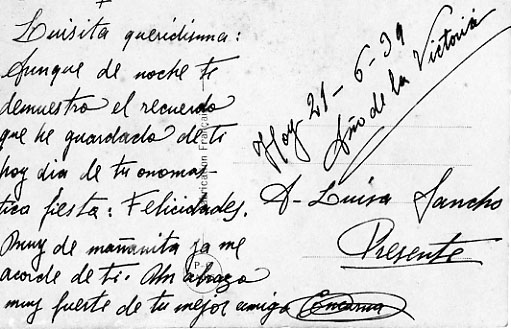 Luisita queridísima:
Aunque de noche te
demuestro el recuerdo
que he guardado de ti
hoy dia de tu onomas-
tica fiesta: Felicidades.
Muy de mañanita ya me
acorde de ti. Un abrazo
muy fuerte de tu mejor amiga Encarna
Hoy 21-6-39
Año de la Victoria
A- Luisa Sancho
Presente
Fabrication Française